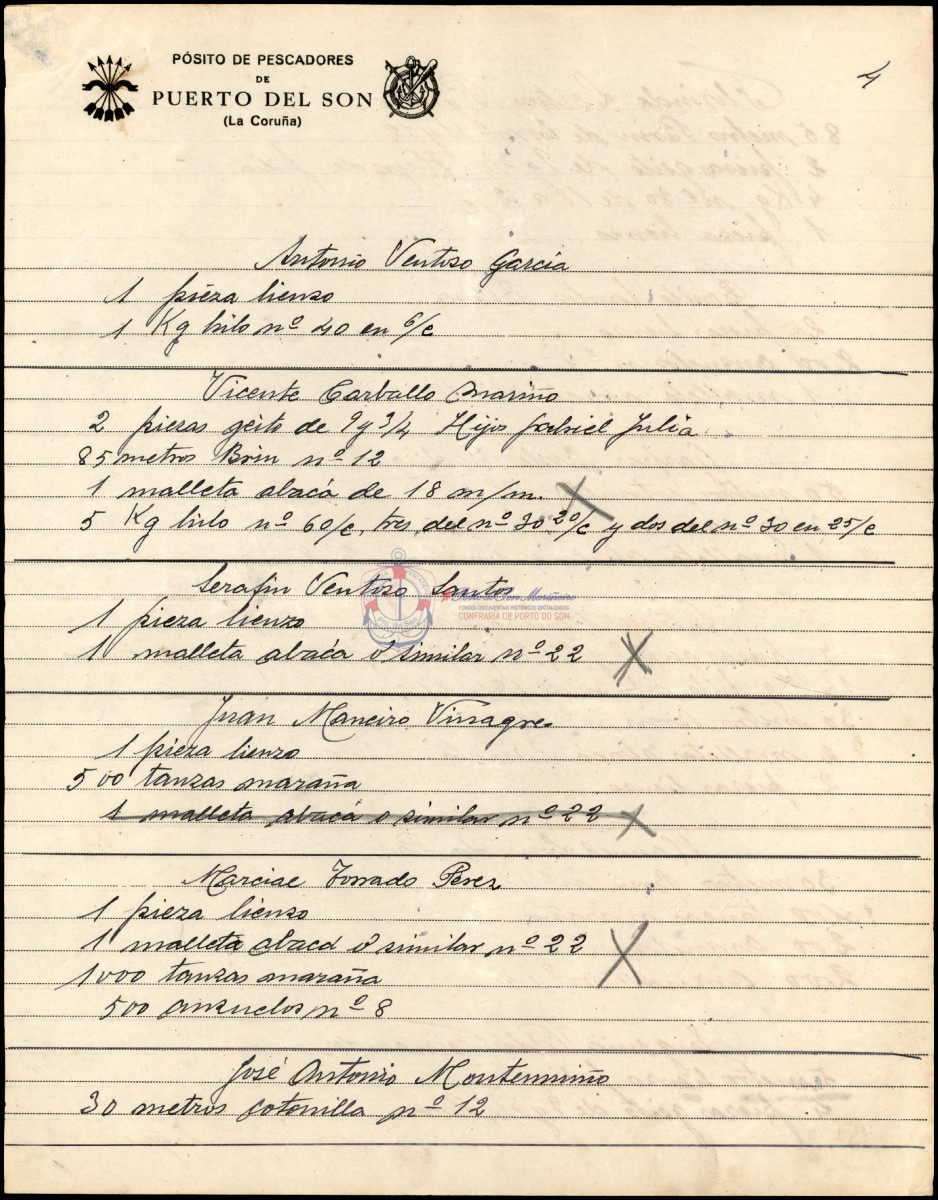 PÓSITO DE PESCADORES
DE
PUERTO DEL SON
(La Coruña)
4
Antonio Ventoso Garcia
1 pieza lienzo
1 Kg hilo nº 40 en 6/c
Vicente Carballo Mariño
2 piezas geito de 9 y 3/4 Hijos Gabriel Julia
85 metros Brin nº 12
1 malleta abacá de 18 m/m.
5 Kg hilo nº 60/c, tres del nº 30 20/c y dos del nº 30 en 25/c
Serafin Ventoso Santos
1 pieza lienzo
1 malleta abacá o similar nº 22
FONDOS DOCUMENTAIS HISTÓRICOS DIXITALIZADOS
CONFRARÍA DE PORTO DO SON
Juan Maneiro Vinagre
1 pieza lienzo
500 tanzas maraña
1 malleta abacá o similar nº 22
Marcial Torrado Perez
1 pieza lienzo
1 malleta abacá o similar nº 22
1000 tanzas maraña
500 anzuelos nº 8
José Antonio Montemiño
30 metros cotonilla nº 12